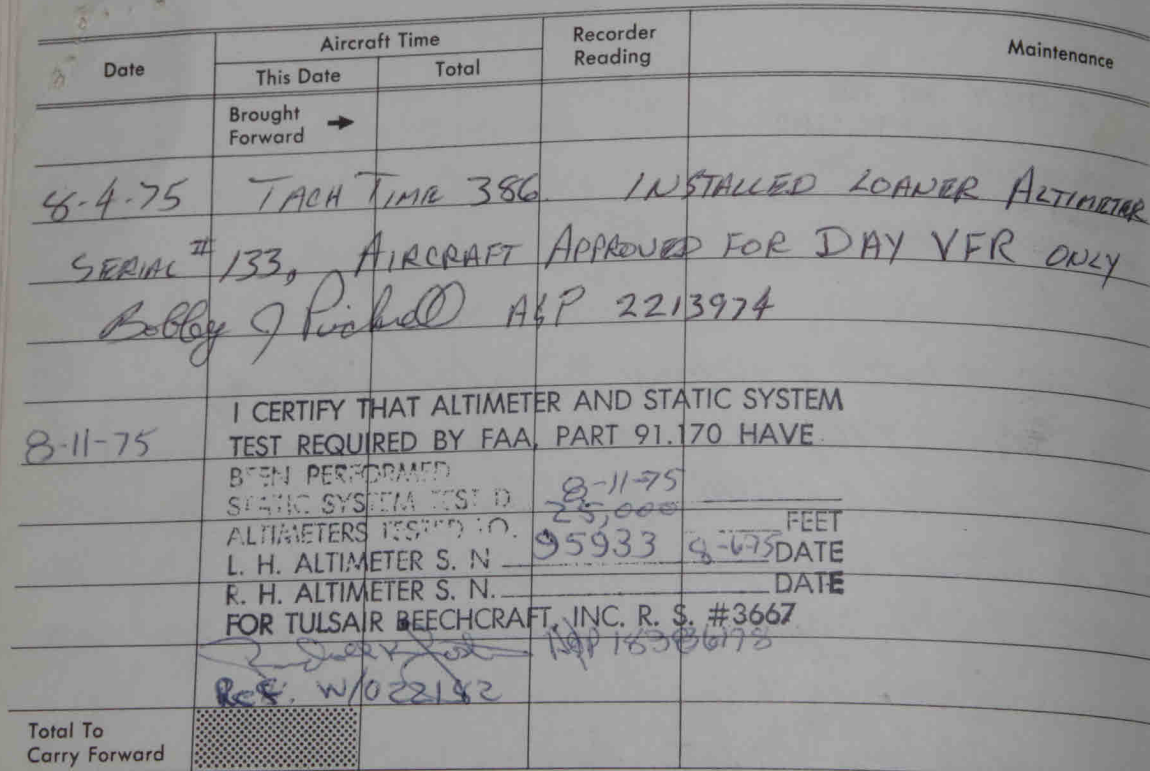 Date Aircraft Time Recorder Reading Maintenance
This Date Total
Brought Forward →
8-4-75 TACH TIME 386 INSTALLED LOANER ALTIMETER
SERIAL # 133, AIRCRAFT APPROVED FOR DAY VFR ONLY
Bobby J A&P 2213974
I CERTIFY THAT ALTIMETER AND STATIC SYSTEM
8-11-75 TEST REQUIRED BY FAA, PART 91.170 HAVE
BEEN PERFORMED
STATIC SYSTEM TEST D 8-11-75
ALTIMETERS TESTED TO. 25,000 FEET
L. H. ALTIMETER S. N 95933 8-6-75 DATE
R. H. ALTIMETER S. N. DATE
FOR TULSAIR BEECHCRAFT, INC. R. S. #3667
Ref. W/O 22182
Total To Carry Forward